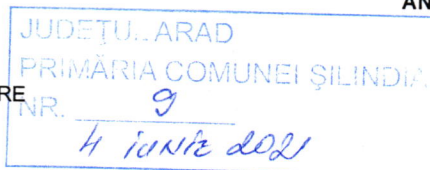 AN
JUDEȚUL ARAD
PRIMĂRIA COMUNEI ȘILINDIA
RE
NR. 9
4 iunie 2021